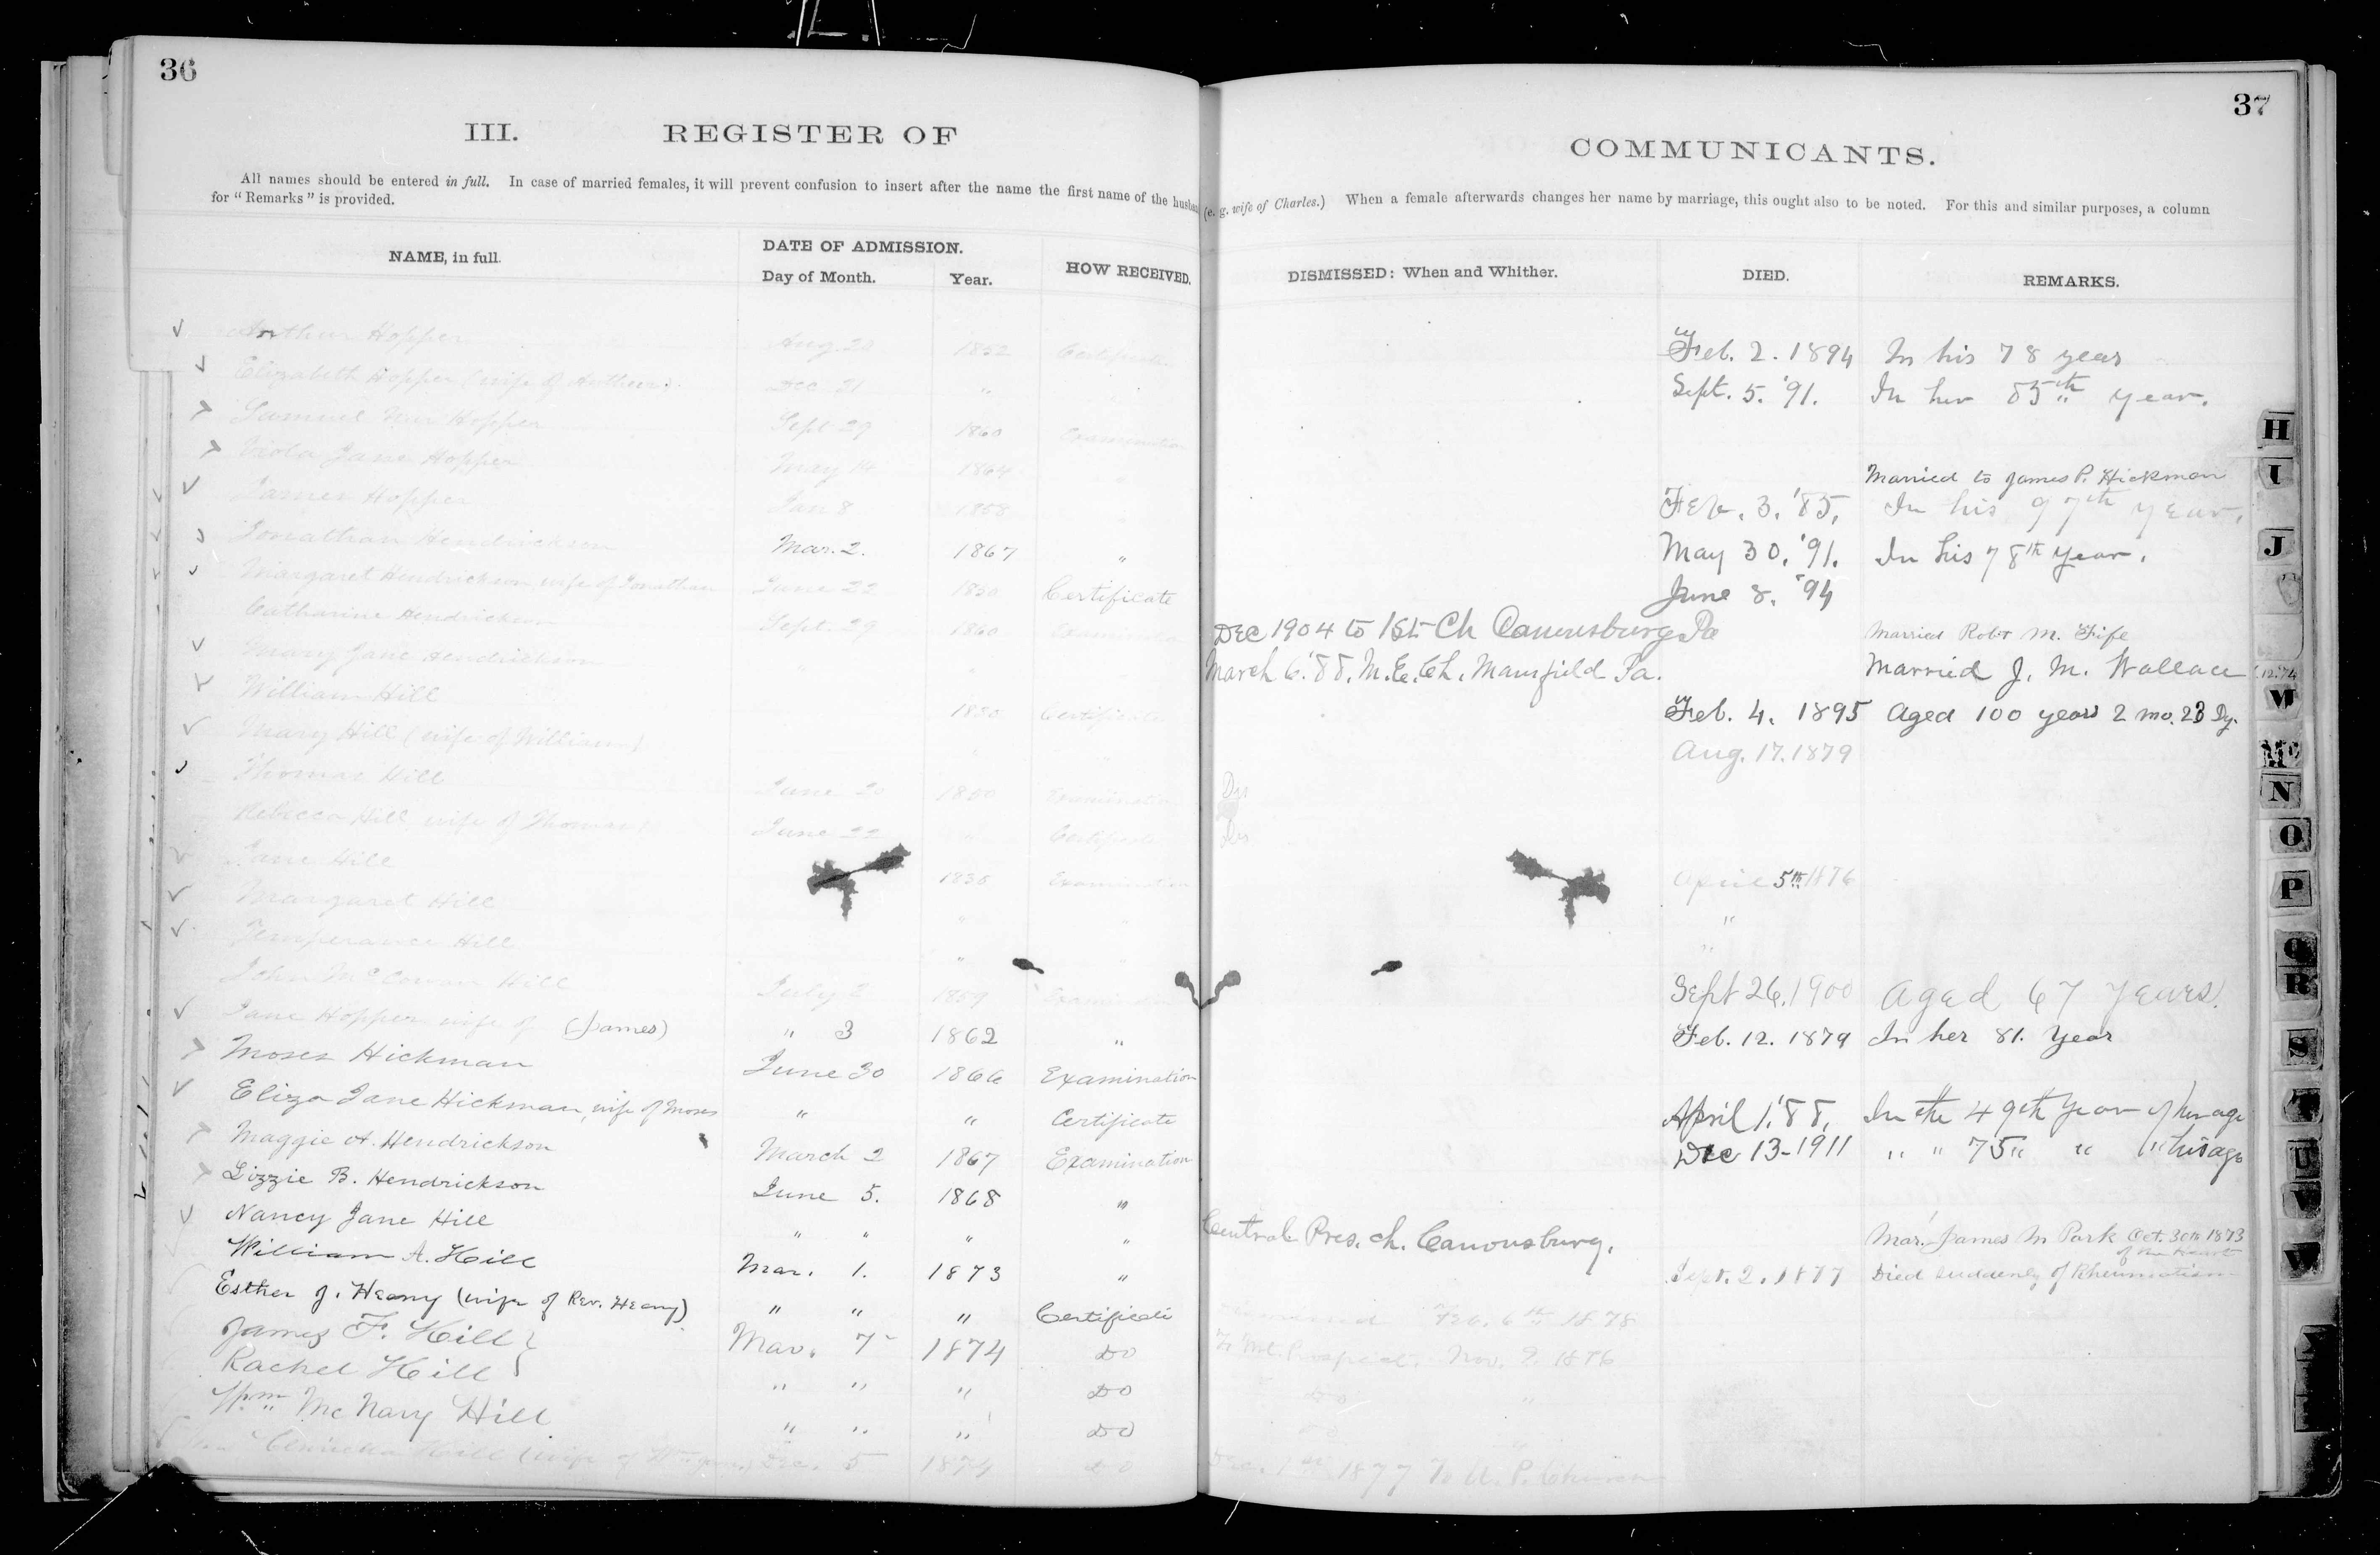 36
III. REGISTER OF
All names should be entered in full. In case of married females, it will prevent confusion to insert after the name the first name of the husband
for "Remarks" is provided.
NAME, in full.
DATE OF ADMISSION.
Day of Month. Year.
HOW RECEIVED.
Arthur Hopper Aug 28 1852 Certificate
Elizabeth Hopper (wife of Arthur) Dec 21 "
Samuel Hopper Sept 29 1860 Examination
Viola Jane Hopper May 14 1864 "
James Hopper Jan 8 1858
Jonathan Hendrickson Mar. 2. 1867 "
Margaret Hendrickson, wife of Jonathan June 22 1850 Certificate
Catharine Hendrickson Sept. 29 1860 Examination
Mary Jane Hendrickson " "
William Hill 1850 Certificate
Mary Hill (wife of William) " "
Thomas Hill June 20 1850 Examination
Rebecca Hill wife of Thomas June 22 " Certificate
Jane Hill 1836 Examination
Margaret Hill " "
Temperance Hill " "
John McCowan Hill July 2 1859 Examination
Jane Hopper wife of (James) " 3 1862 "
Moses Hickman June 30 1866 Examination
Eliza Jane Hickman, wife of Moses " " Certificate
Maggie A. Hendrickson March 2 1867 Examination
Lizzie B. Hendrickson June 5. 1868 "
Nancy Jane Hill " " " "
William A. Hill Mar. 1. 1873 "
Esther J. Heany (wife of Rev. Heany) " " " Certificate
James F. Hill } Mar. 7 1874 Do
Rachel Hill " " " Do
Wm McNary Hill " " " Do
Hill (wife of Dec. 5 1874 Do
37
COMMUNICANTS.
(e. g. wife of Charles.) When a female afterwards changes her name by marriage, this ought also to be noted. For this and similar purposes, a column
DISMISSED: When and Whither.
DIED.
REMARKS.
Feb. 2. 1894 In his 78 year
Sept. 5. '91. In her 85th year.
Married to James P. Hickman
Feb. 3. '85. In his 97th year.
May 30. '91. In his 78th year.
June 8. '94
Dec 1904 to 1st Ch Canonsburg Pa Married Robt M. Fife
March 6. '88. M.E. Ch. Mansfield Pa. Married J. M. Wallace
Feb. 4. 1895 Aged 100 years 2 mo. 23 Dy.
Aug. 17. 1879
Dis
Dis
April 5th 1876
"
"
Sept 26. 1900 Aged 67 Years.
Feb. 12. 1879 In her 81. Year
April 1. '88. In the 49th Year of her age
Dec 13-1911 " " 75 " " " his age
Central Pres. ch. Canonsburg. Mar. James M Park Oct. 30th 1873
of the Heart
Sept. 2. 1877 Died suddenly of Rheumatism
Feb. 6th 1878
To Mt. Prospect. Nov. 9. 1876
Do "
Do "
Dec. 1st 1877 To U. P. Church
H
I
J
M
Mc
N
O
P
Q
R
S
T
U
V
W